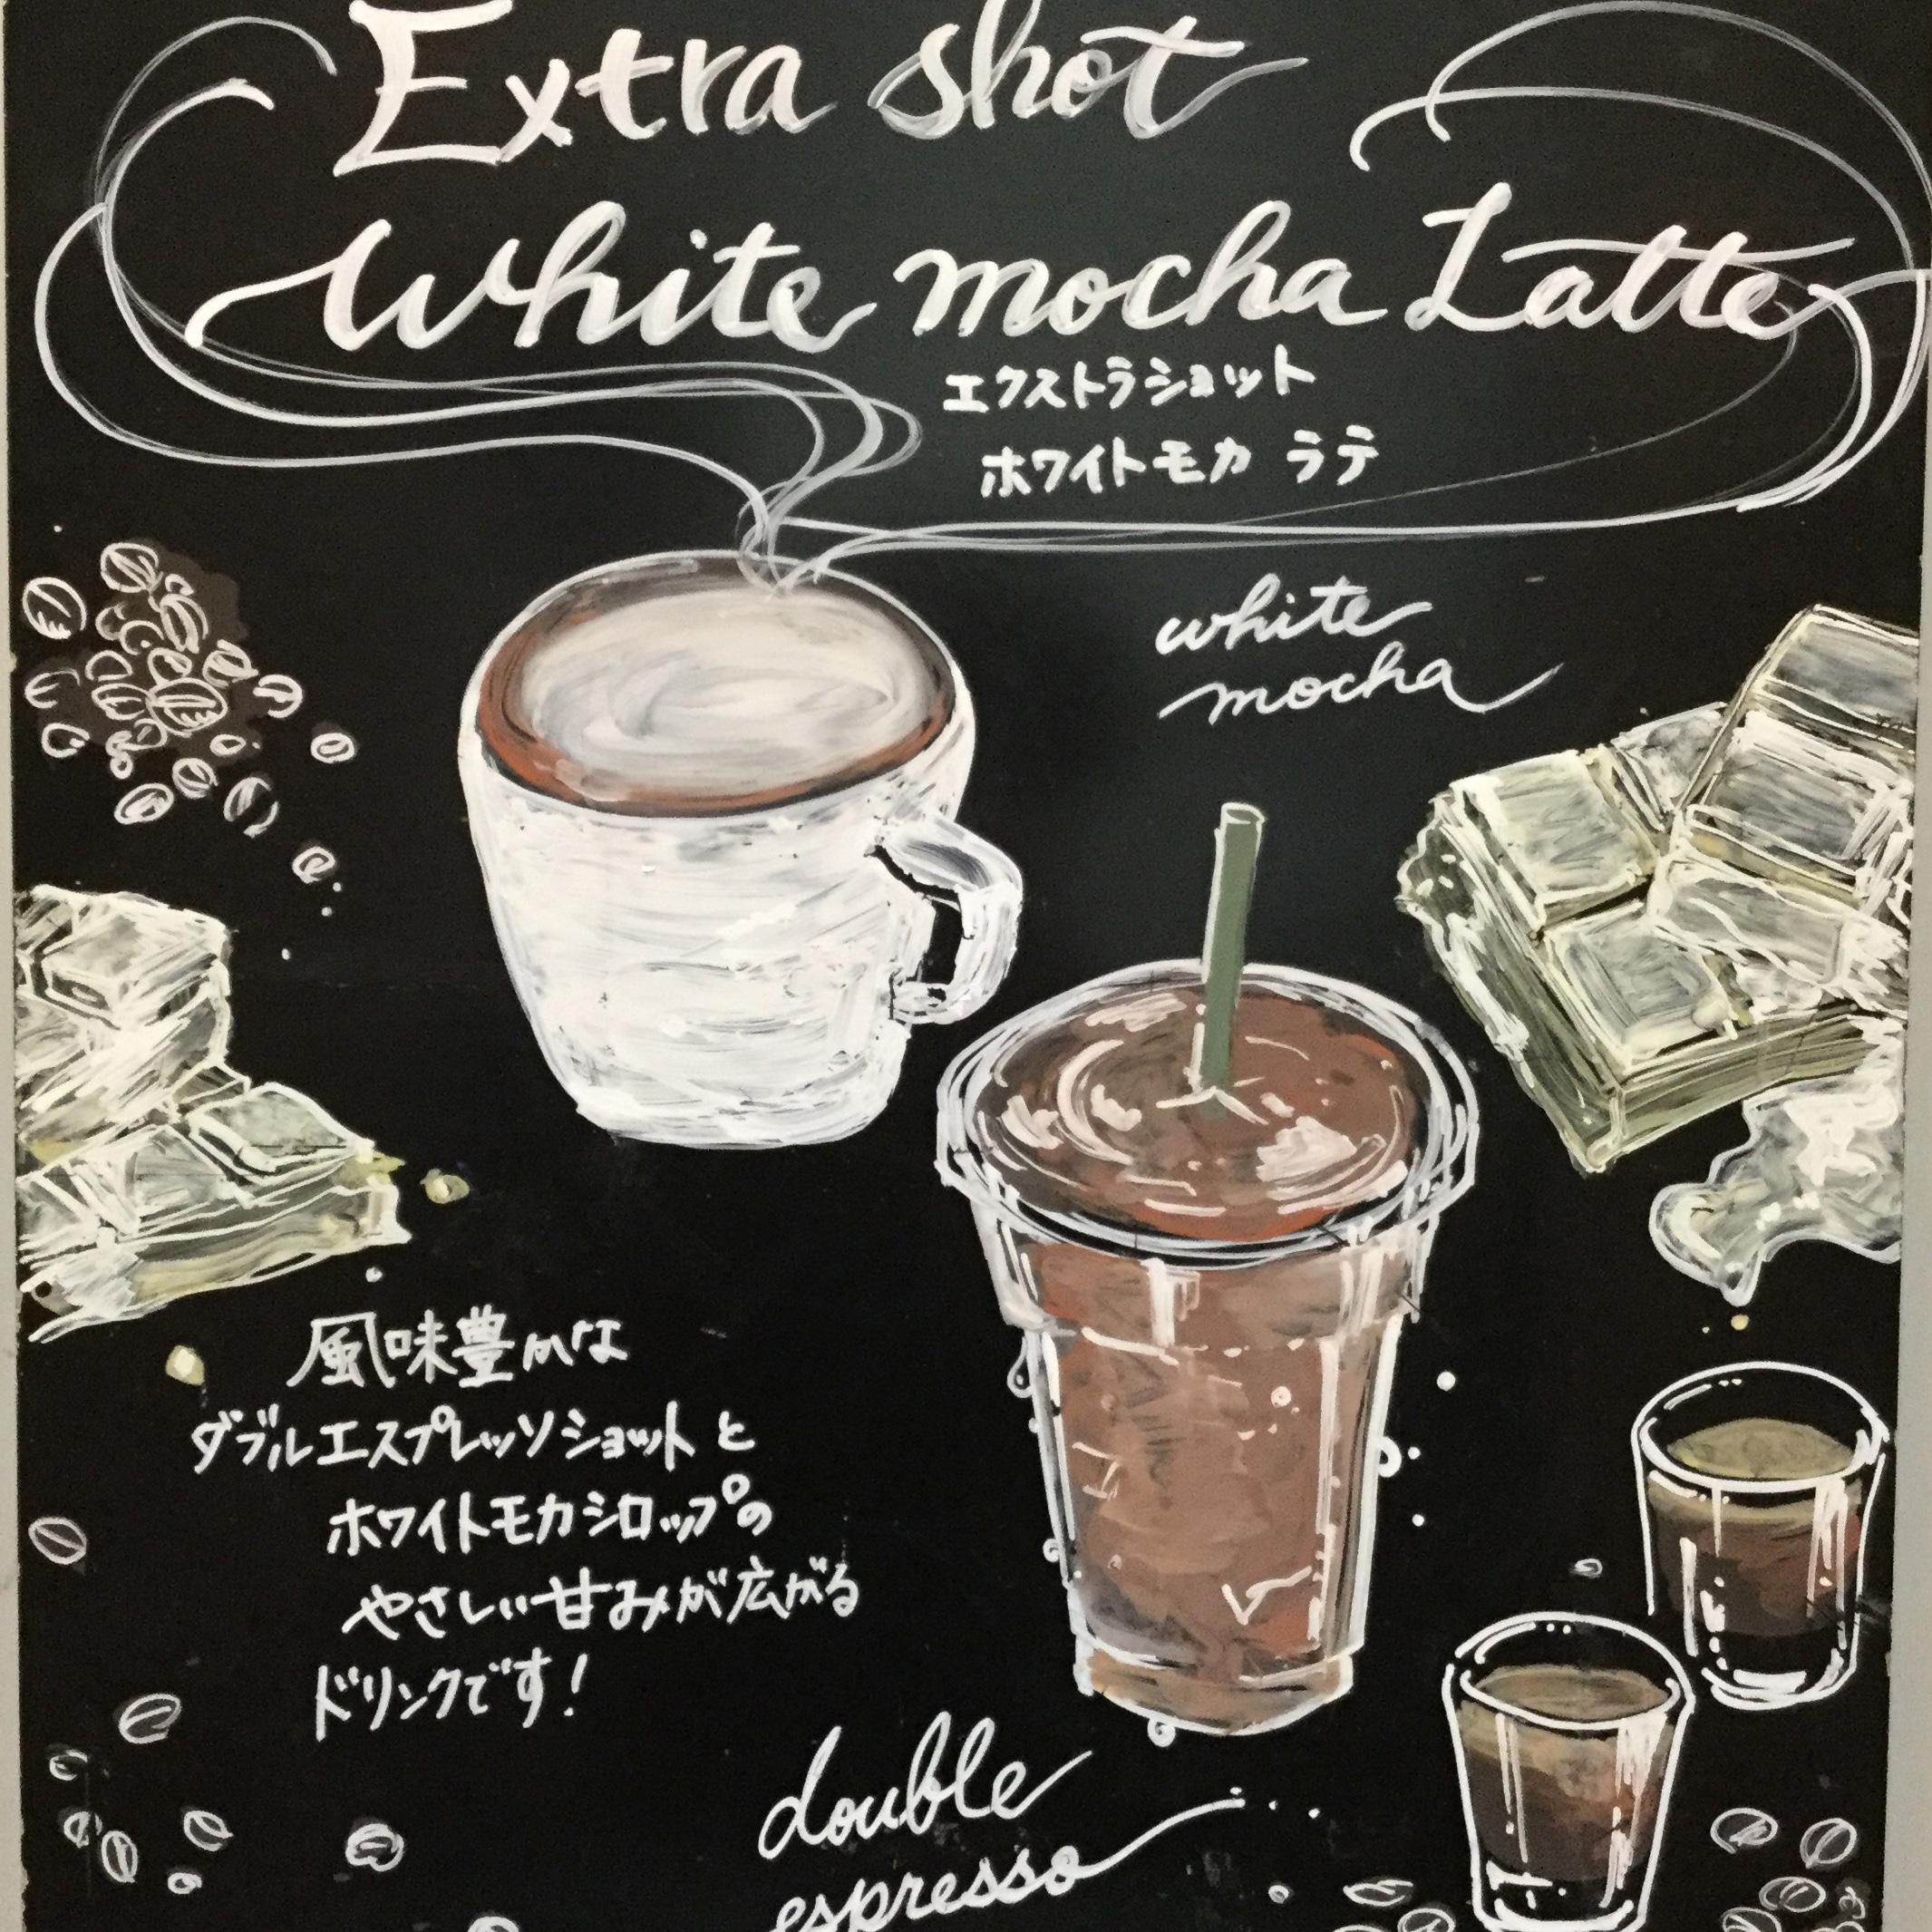 Extra shot
White mocha Latte
エクストラショット
ホワイトモカ ラテ
white
mocha
風味豊かな
ダブルエスプレッソショットと
ホワイトモカシロップの
やさしい甘みが広がる
ドリンクです!
double
espresso